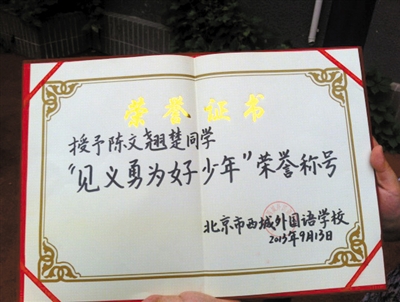 荣誉证书
授予陈文尧翘楚同学
“见义勇为好少年”荣誉称号
北京市西城外国语学校
2013年9月13日